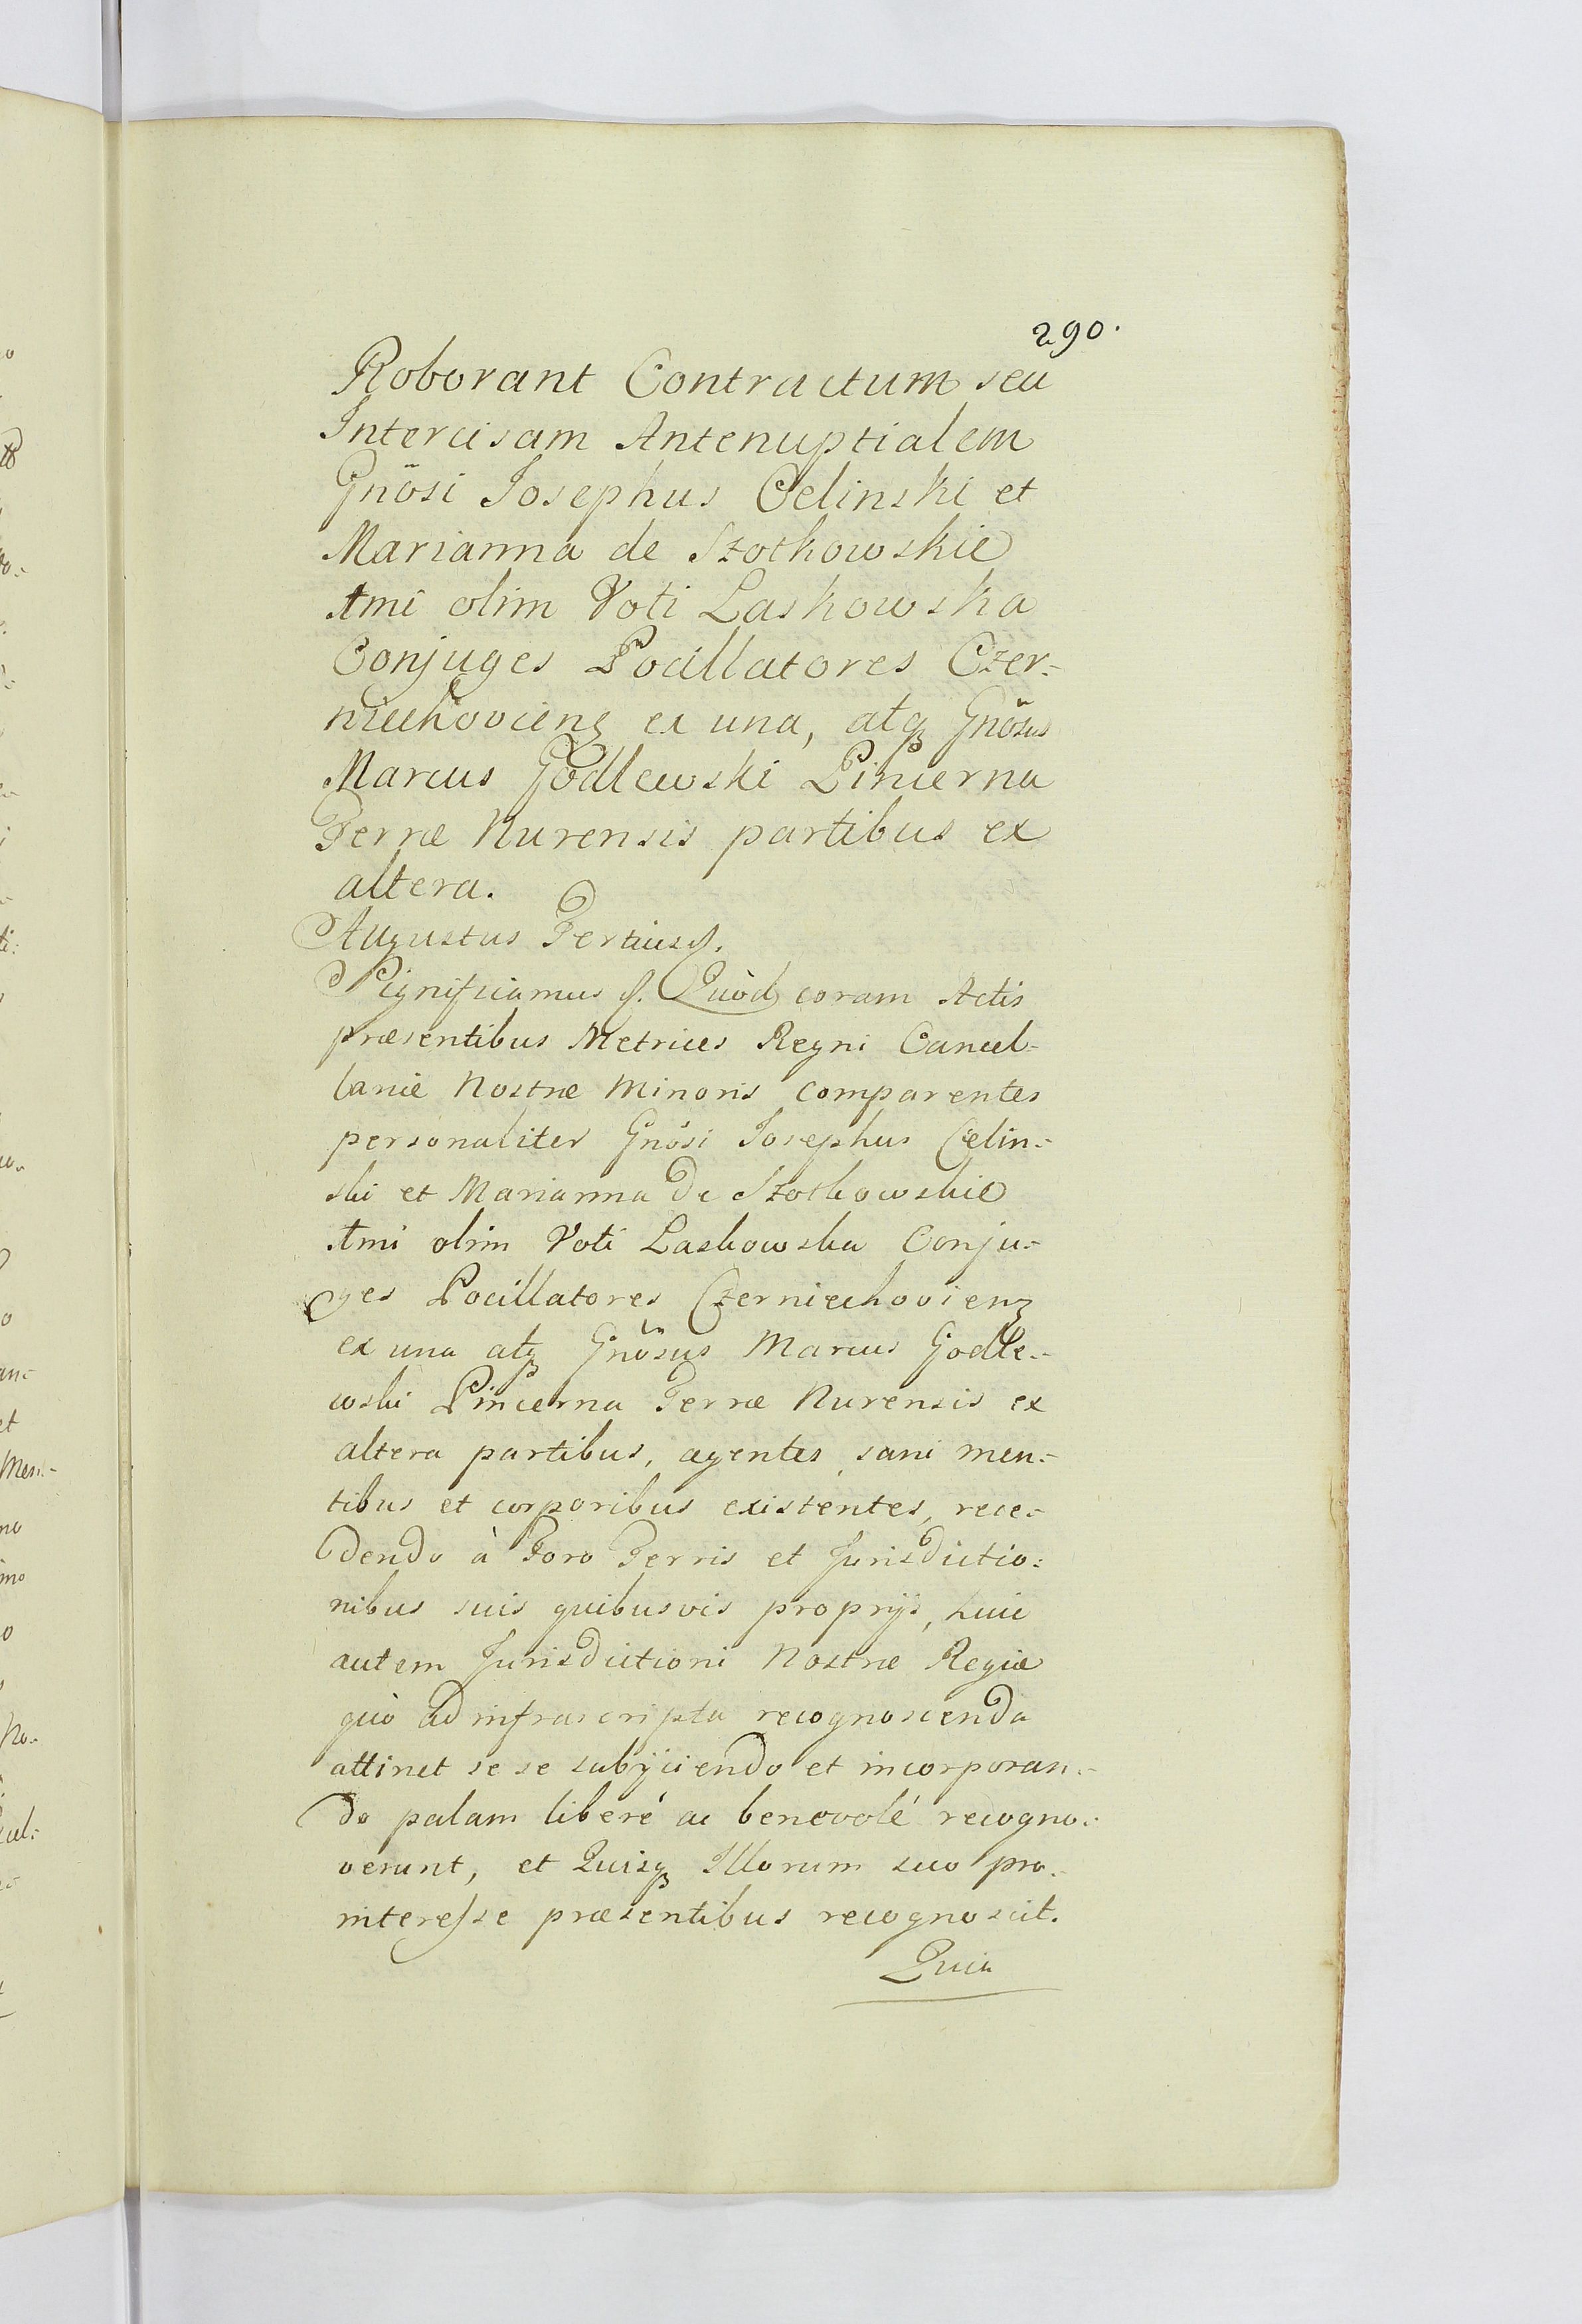 290.
Roborant Contractum seu
Intercisam Antenuptialem
Gnõsi Josephus Celinski et
Marianna de Szotkowskie
Imi olim Voti Laskowska
Conjuges Pocillatores Czer-
niechoviens ex una, atq Gnõsus
Marcus Godlewski Pincerna
Terræ Nurensis partibus ex
altera.
Augustus Tertius
Significamus Quòd coram Actis
præsentibus Metrices Regni Cancel-
lariæ Nostræ Minoris comparentes
personaliter Gnõsi Josephus Celin-
ski et Marianna de Szotkowskie
Imi olim Voti Laskowska Conju-
ges Pocillatores Czerniechoviens
ex una atq Gnõsus Marcus Godle-
wski Pincerna Terræ Nurensis ex
altera partibus, agentes, sani men-
tibus et corporibus existentes, rece-
dendo à Foro Terris et Jurisdictio-
nibus suis quibusvis proprijs, huic
autem Jurisdictioni Nostræ Regiæ
quò ad infrascripta recognoscenda
attinet se se subijciendo et incorporan-
do palam liberé ac benevolé recogno-
verunt, et Quisq Illorum suo pro
interesse præsentibus recognoscit.
Quia